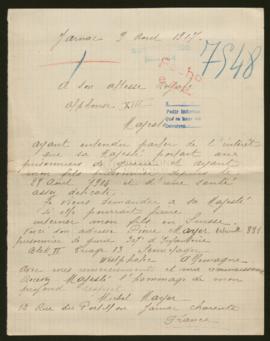 Jarnac 9 Avril 1917
7548
A son altesse Royale
Alphonse XIII
Majesté
Pedir
ayant entendu parler de l'intérêt
que sa Majesté portait aux
prisonniers de guerre et ayant
mon fils prisonnier depuis le
28 Aout 1914 et d'une santé
assez délicate
Je viens demander a sa Majesté
si elle pourrait faire
interner mon fils en Suisse
Voici son adresse Pierre Mayer
prisonnier de guerre 3 d'Infanterie
Westphalie Allemagne
Avec mes remerciements et ma reconnaissance
Majesté l'hommage de mon
profond respect
Michel Mayer
12 Rue des Jarnac Charente
France